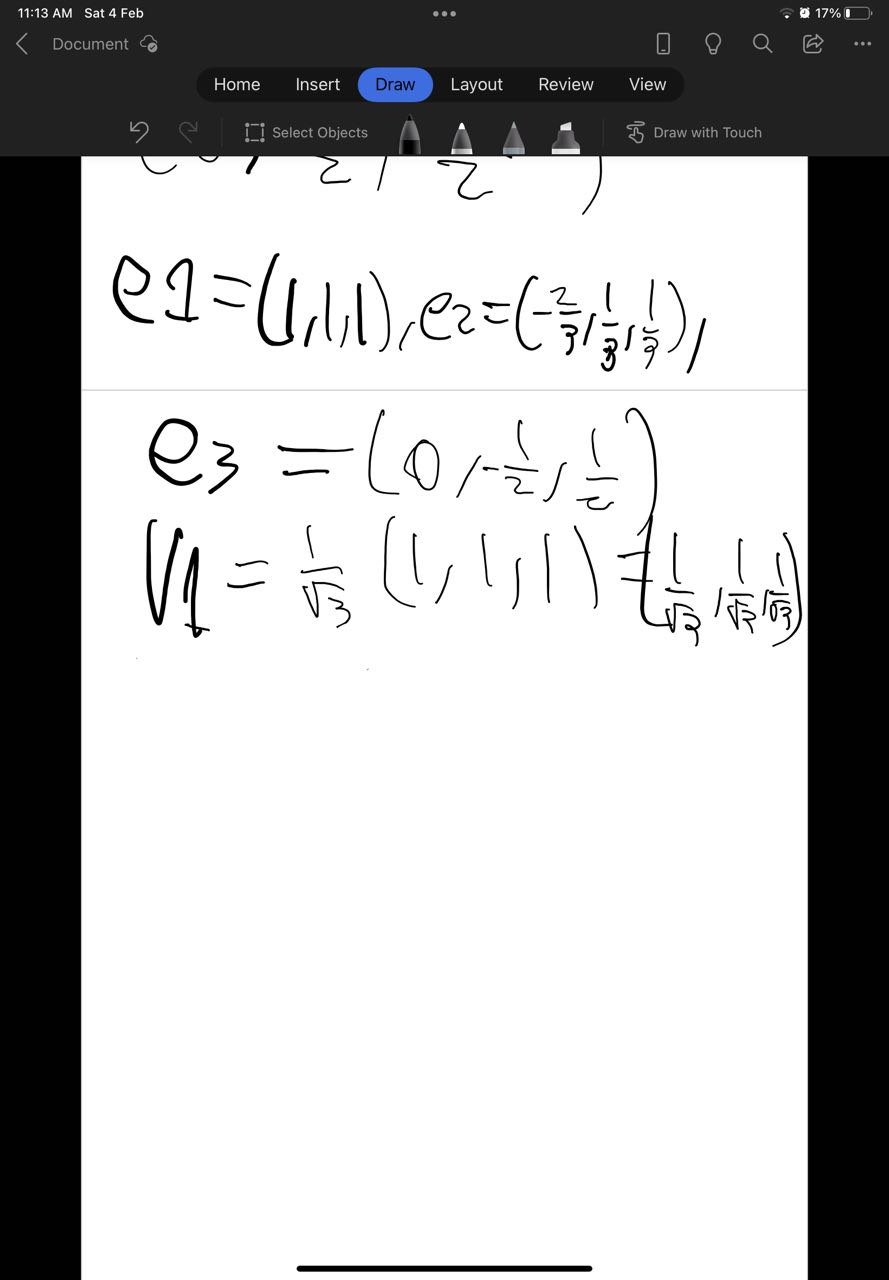 11:13 AM Sat 4 Feb 17%
Document
Home Insert Draw Layout Review View
Select Objects Draw with Touch
e1=(1,1,1), e2=(-2/3, 1/3, 1/3),
e3 = (0, -1/2, 1/2)
V1 = 1/√3 (1, 1, 1) = (1/√3, 1/√3, 1/√3)